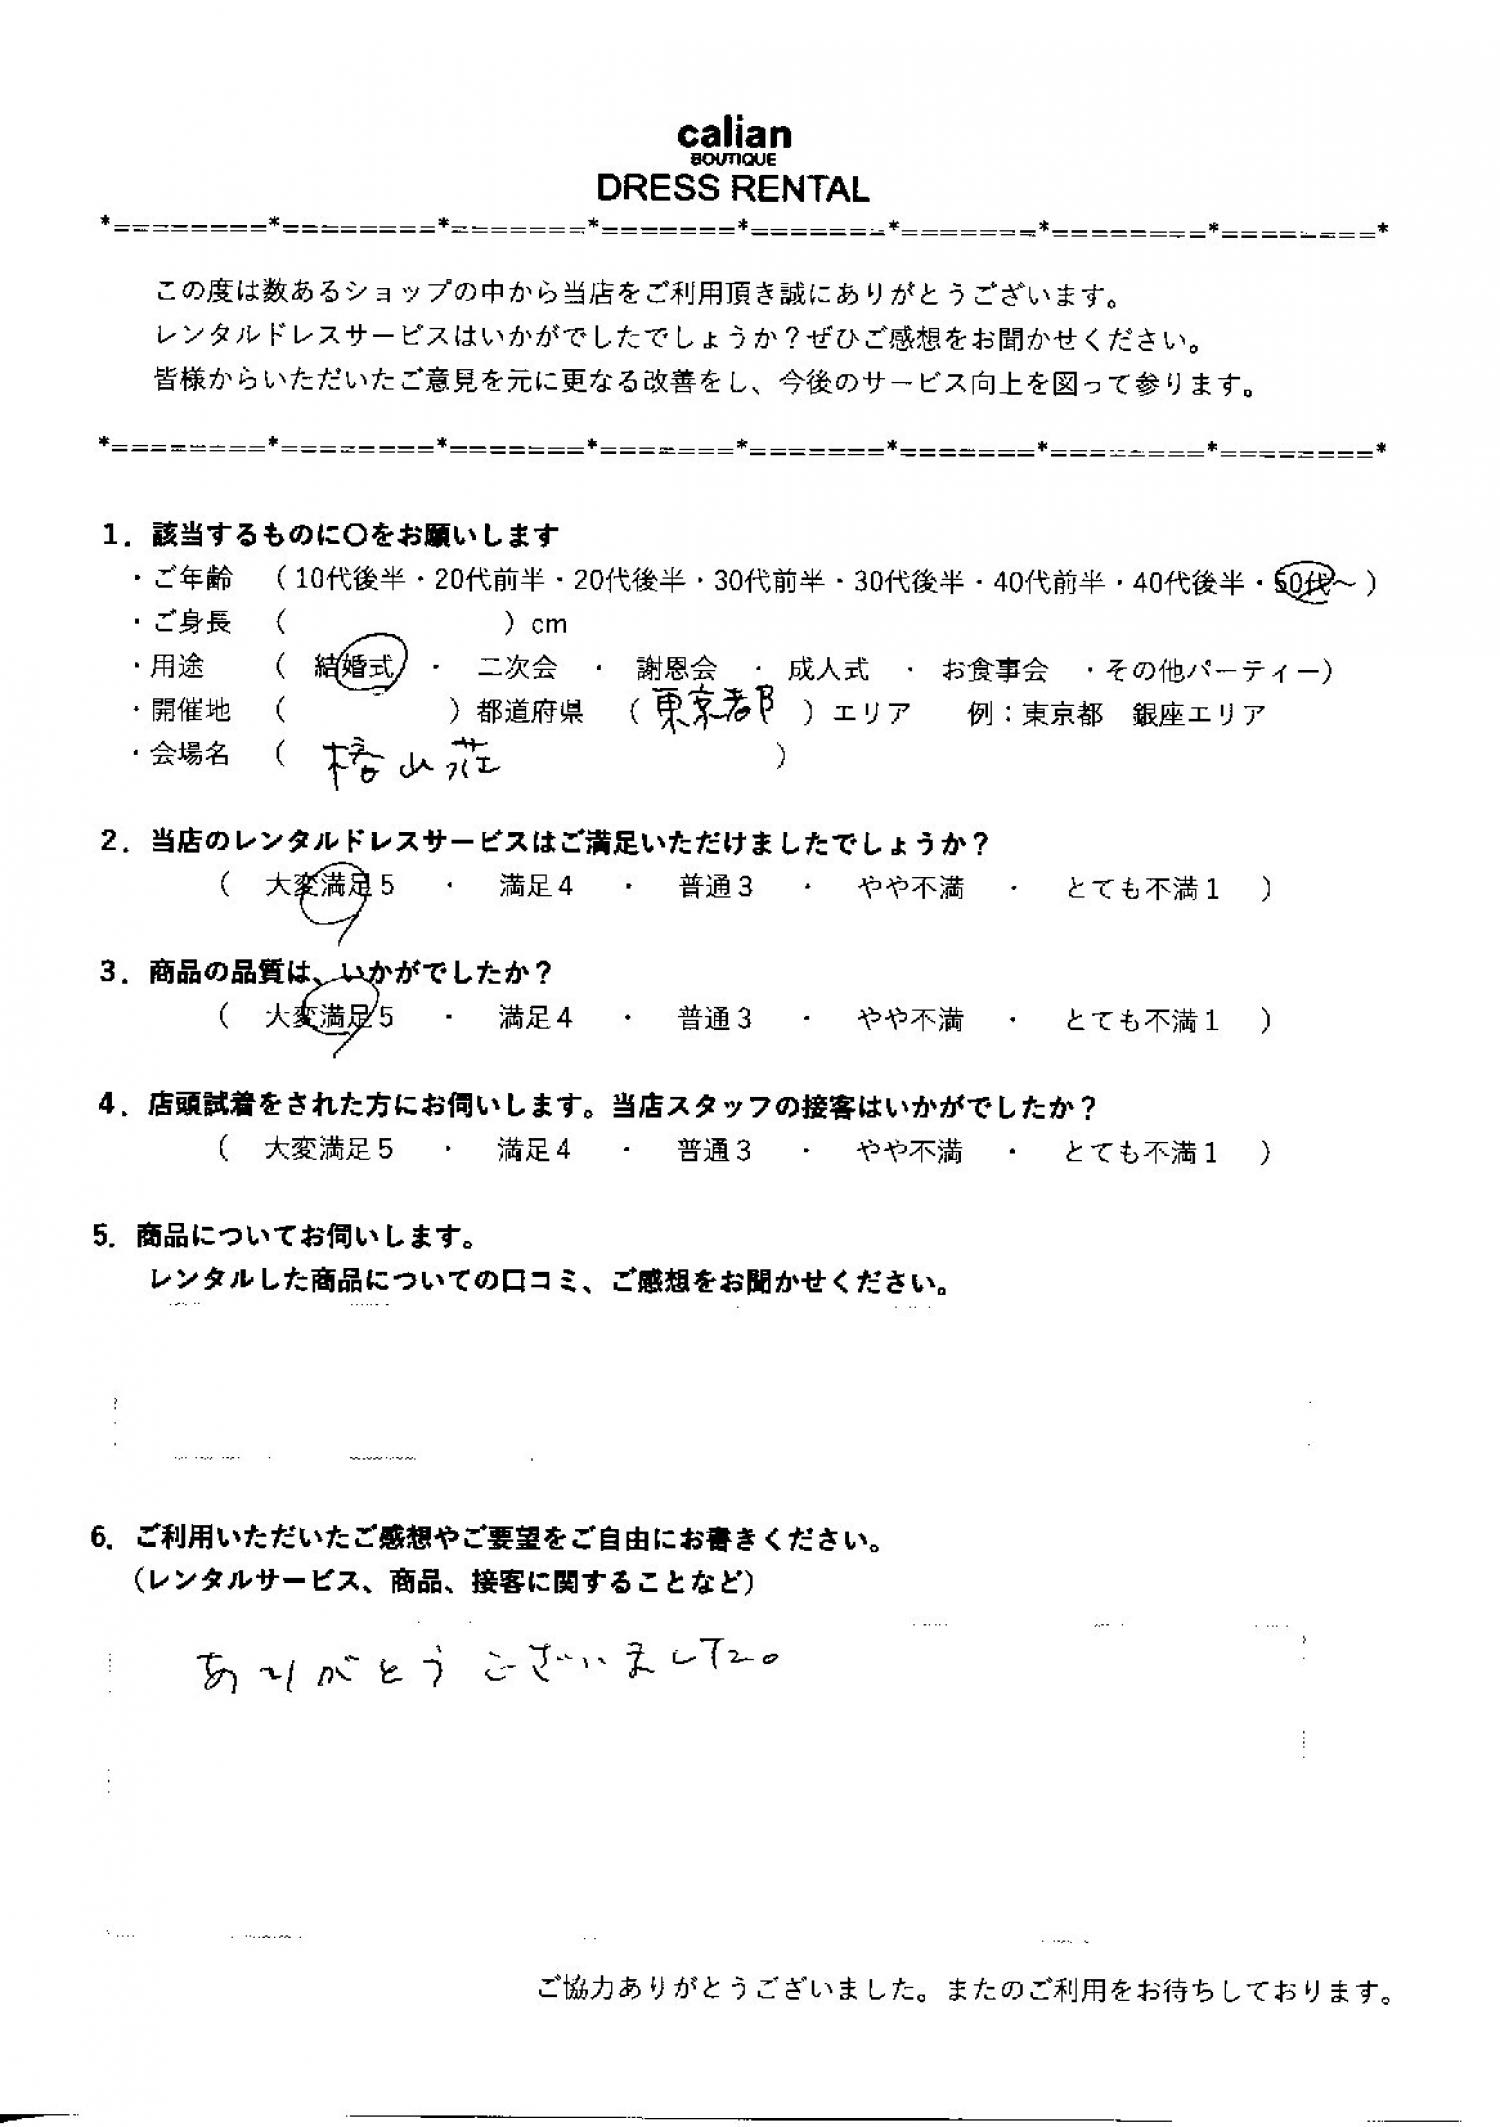 calian
BOUTIQUE
DRESS RENTAL
*========*========*=======*=======*=======*=======*========*========*
この度は数あるショップの中から当店をご利用頂き誠にありがとうございます。
レンタルドレスサービスはいかがでしたでしょうか？ぜひご感想をお聞かせください。
皆様からいただいたご意見を元に更なる改善をし、今後のサービス向上を図って参ります。
*========*========*=======*=======*=======*=======*========*========*
1．該当するものに〇をお願いします
・ご年齢　（10代後半・20代前半・20代後半・30代前半・30代後半・40代前半・40代後半・50代～）
・ご身長　（　　　　　　　　）cm
・用途　　（　結婚式　・　二次会　・　謝恩会　・成人式　・　お食事会　・その他パーティー）
・開催地　（　　　　　　）都道府県　（東京都）エリア　　例：東京都　銀座エリア
・会場名　（　椿山荘　　　　　　　　　　）
2．当店のレンタルドレスサービスはご満足いただけましたでしょうか？
（　大変満足５　・　満足４　・　普通３　・　やや不満　・　とても不満１　）
3．商品の品質は、いかがでしたか？
（　大変満足５　・　満足４　・　普通３　・　やや不満　・　とても不満１　）
4．店頭試着をされた方にお伺いします。当店スタッフの接客はいかがでしたか？
（　大変満足５　・　満足４　・　普通３　・　やや不満　・　とても不満１　）
5．商品についてお伺いします。
レンタルした商品についての口コミ、ご感想をお聞かせください。
6．ご利用いただいたご感想やご要望をご自由にお書きください。
（レンタルサービス、商品、接客に関することなど）
ありがとうございました。
ご協力ありがとうございました。またのご利用をお待ちしております。